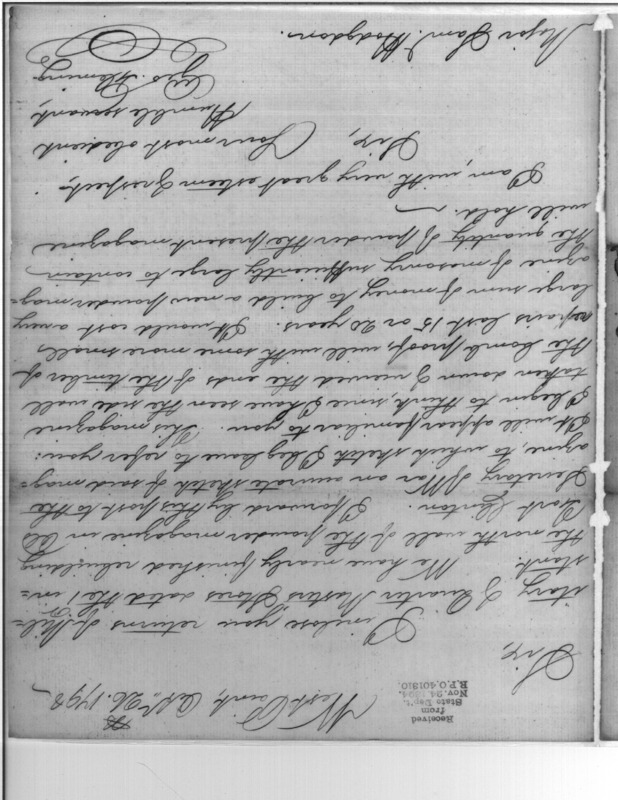 Received
from
State Dep't.
Nov. 24, 1894.
R.P.O. 401810.
West Point, Apl. 26. 1798
Sir,
I inclose you returns of Mil-
itary & Quarter Masters Stores dated the 1 in-
stant. We have nearly finished rebuilding
the north wall of the powder magazine in old
Fort Clinton. I forward by this post to the
Secretary of War an accurate sketch of said mag-
azine, to which sketch I beg leave to refer you:
It will appear familiar to you. This magazine
I begin to think, since I have seen the side wall
taken down & viewed the ends of the timber of
the bomb proof, will with some more small
repairs last 15 or 20 years. It would cost a very
large sum of money to build a new powder mag-
azine of masonry sufficiently large to contain
the quantity of powder the present magazine
will hold.
I am, with very great esteem & respect,
Sir,
Your most obedient
Humble servant,
Geo. Fleming
Major Sam.l Hodgdon.